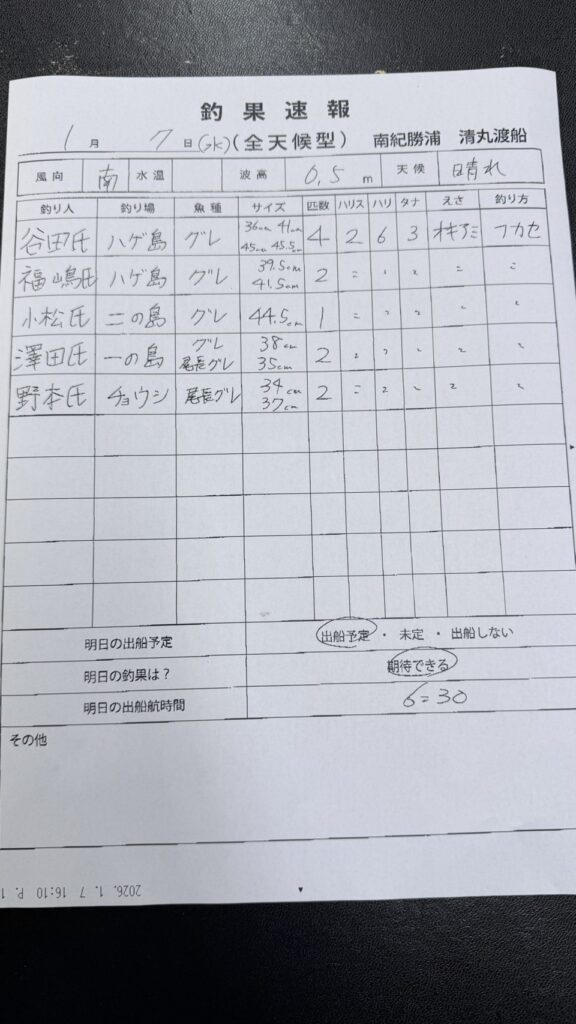 釣果速報
1月 7日(水)(全天候型) 南紀勝浦 清丸渡船
風向 南 水温 波高 0.5 m 天候 晴れ
釣り人 釣り場 魚種 サイズ 匹数 ハリス ハリ タナ えさ 釣り方
谷田氏 ハゲ島 グレ 36cm 41cm 45cm 45.5cm 4 2 6 3 オキアミ フカセ
福嶋氏 ハゲ島 グレ 39.5cm 41.5cm 2 〃 〃 〃 〃 〃
小松氏 二の島 グレ 44.5cm 1 〃 〃 〃 〃 〃
澤田氏 一の島 グレ 尾長グレ 38cm 35cm 2 〃 〃 〃 〃 〃
野本氏 チョウシ 尾長グレ 34cm 37cm 2 〃 〃 〃 〃 〃
明日の出船予定 出船予定 ・ 未定 ・ 出船しない
明日の釣果は? 期待できる
明日の出船航時間 6:30
その他
2026. 1. 7 16:10 P. 1